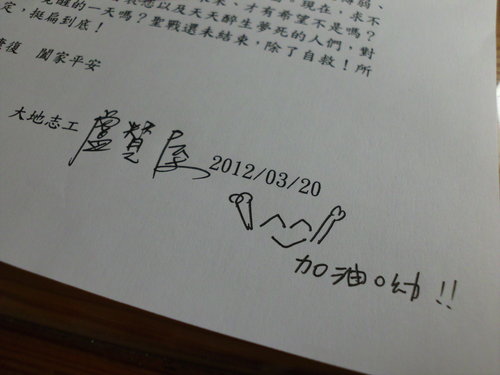 弱、
現在,求不
來、才有希望不是嗎?
想以及天天醉生夢死的人們,對
覺醒的一天嗎?聖戰還未結束,除了自救!所
定,挺扁到底!
復 闔家平安
大地志工 盧贊 2012/03/20
加油呦!!